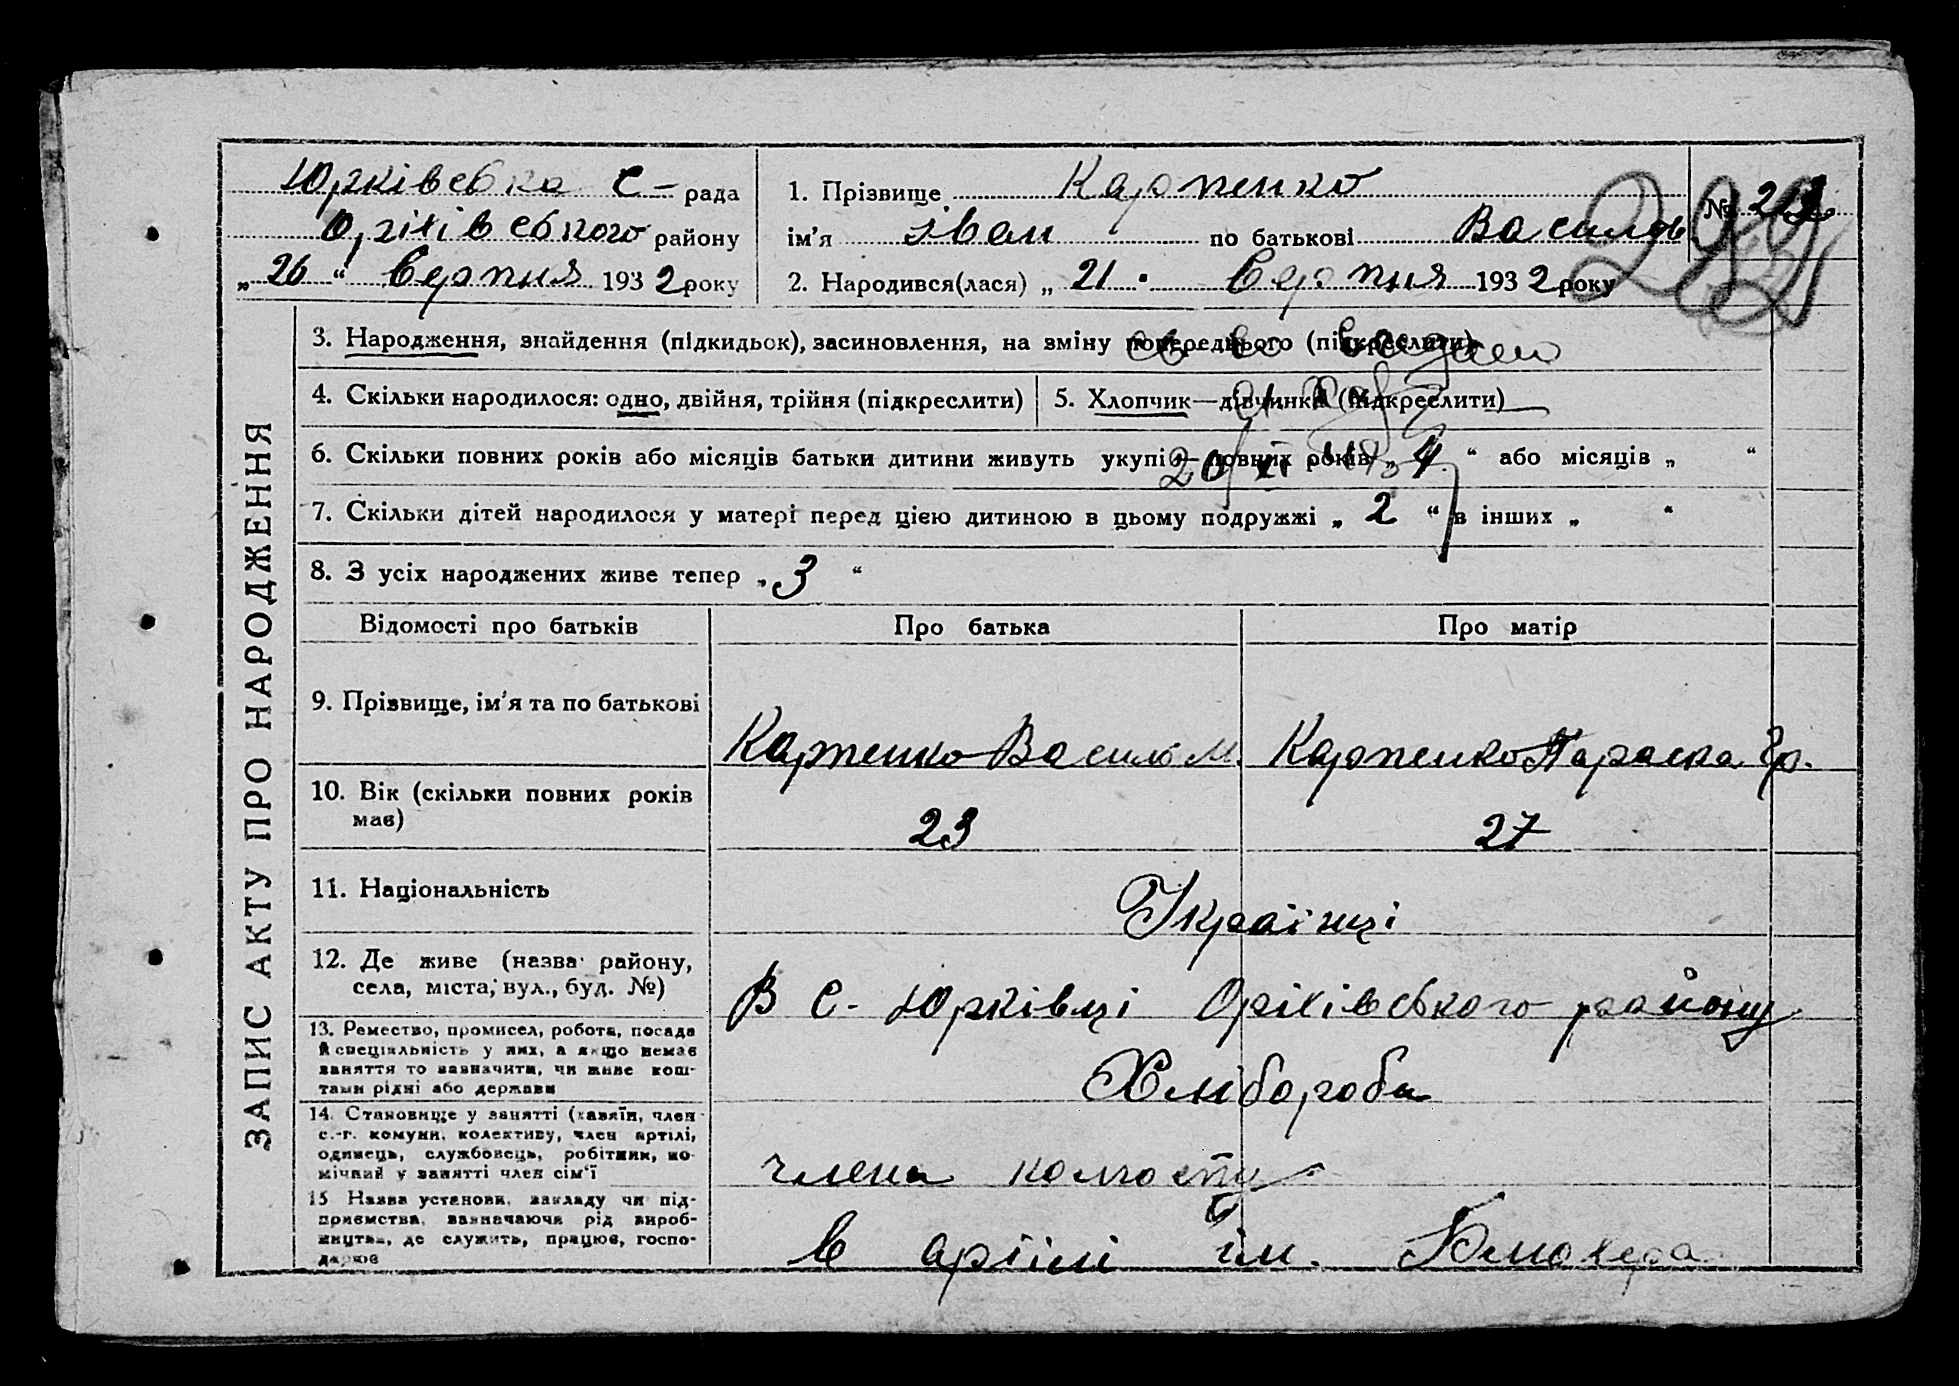 Юрківська С- рада
Оріхівського району
„26“ Серпня 1932 року
1. Прізвище Карпенко
ім’я Іван по батькові Васильов
2. Народився(лася) „21“ Серпня 1932 року
№
ЗАПИС АКТУ ПРО НАРОДЖЕННЯ
3. Народження, знайдення (підкидьок), засиновлення, на зміну попереднього (підкреслити)
4. Скільки народилося: одно, двійня, трійня (підкреслити)
5. Хлопчик—дівчинка (підкреслити)
6. Скільки повних років або місяців батьки дитини живуть укупі — повних років „4“ або місяців „ “
7. Скільки дітей народилося у матері перед цією дитиною в цьому подружжі „2“ в інших „ “
8. З усіх народжених живе тепер „3“
Відомості про батьків Про батька Про матір
9. Прізвище, ім’я та по батькові
Карпенко Василь М. Карпенко Параска Гр.
10. Вік (скільки повних років
має)
23 27
11. Національність
Українці
12. Де живе (назва району,
села, міста, вул., буд. №)
В с. Юрківці Оріхівського району
13. Ремество, промисел, робота, посада
й спеціяльність у них, а якщо немає
заняття то зазначити, чи живе кош-
тами рідні або держави
Хлібороби
14. Становище у занятті (хазяїн, член
с.-г. комуни, колективу, член артілі,
одинець, службовець, робітник, по-
мічний у занятті член сім’ї
члени колгоспу
15 Назва установи, закладу чи під-
приємства, зазначаючи рід вироб-
ництва, де служить, працює, госпо-
дарює
в артілі ім. Блюхера